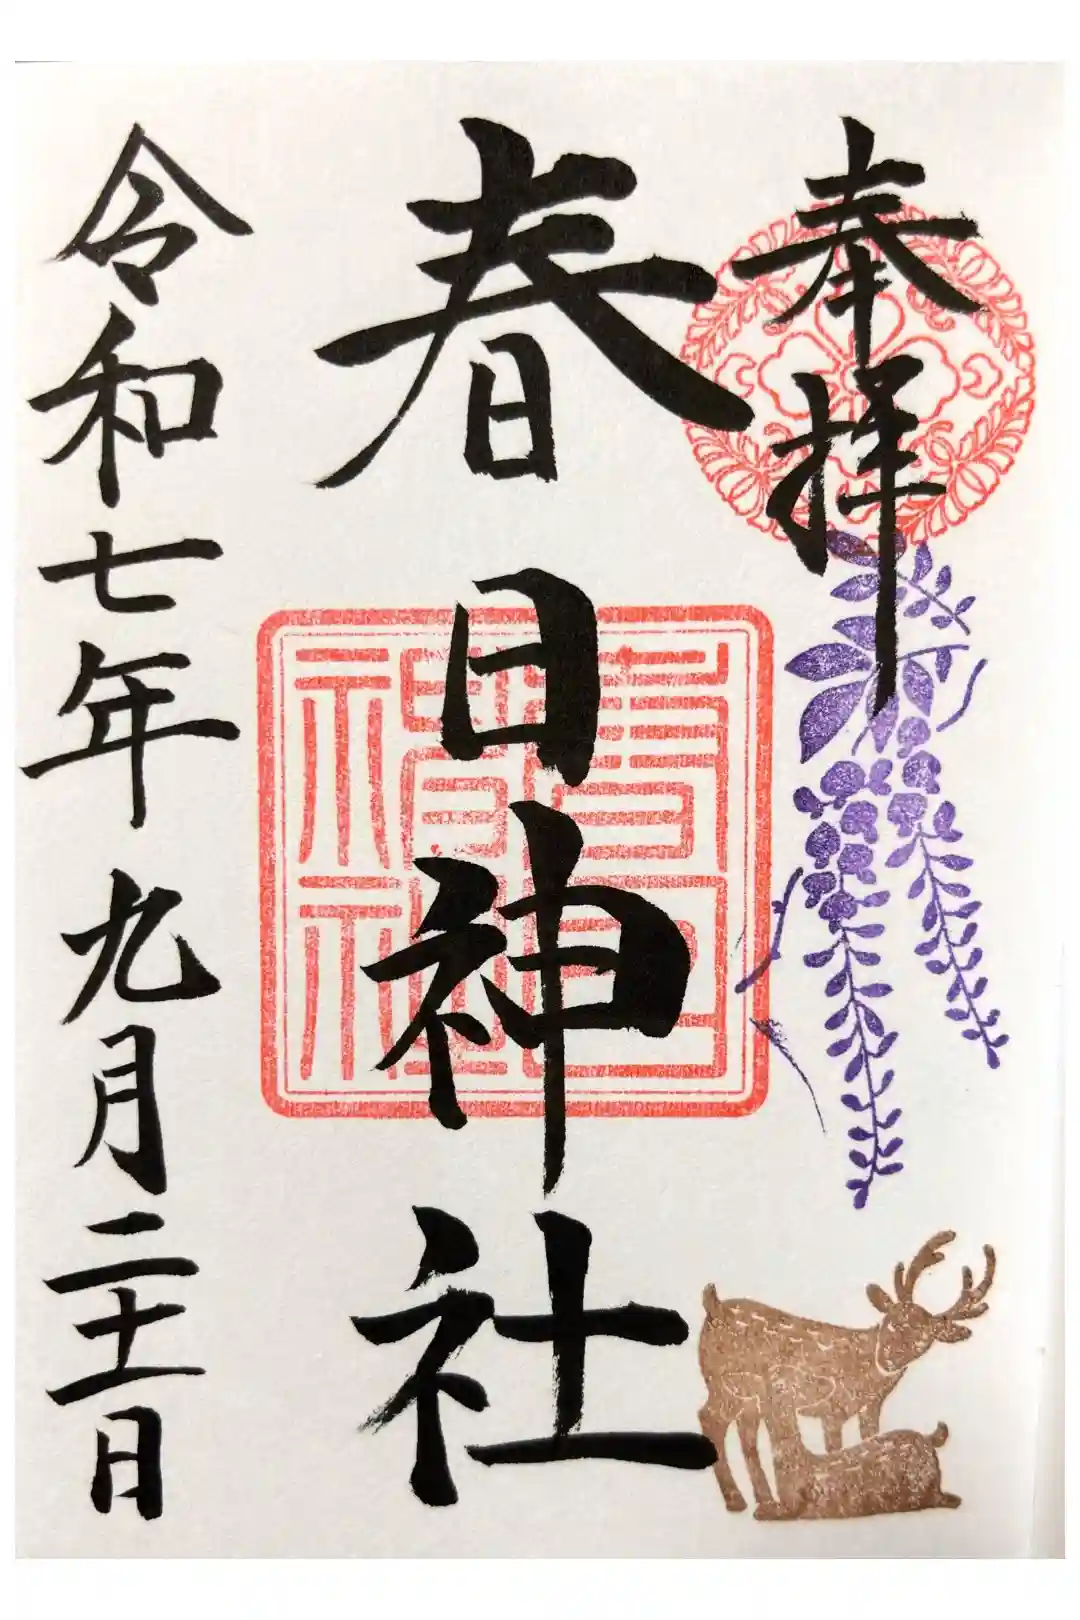 奉拝
春日神社
春日神社
令和七年九月二十一日